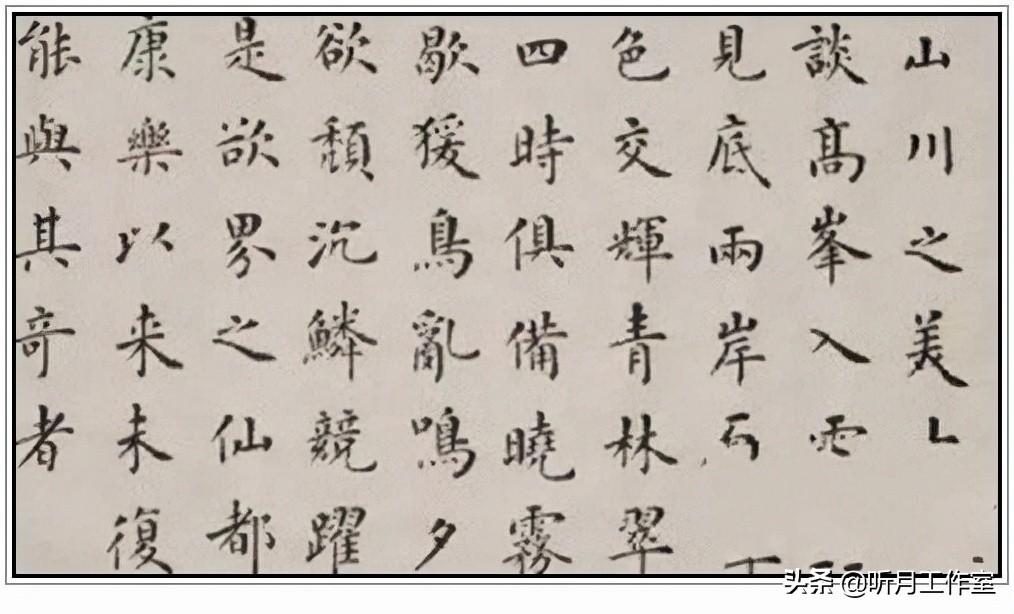 山川之美
談髙峯入
見底兩岸石
色交輝青林翠
四時俱備曉霧
歇猨鳥亂鳴夕
欲頹沉鱗競躍
是欲界之仙都
康樂以来未復
能與其奇者
头条 @听月工作室